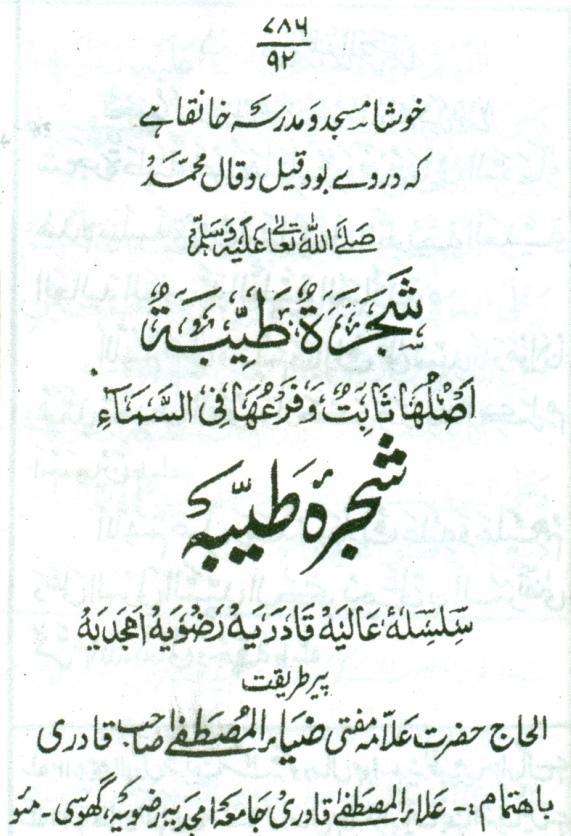 ۷۸۶
۹۲
خوشا مسجد و مدرسہ خانقاہے
کہ دروے بود قیل و قال محمدؐ
صَلَّے اللہُ تَعَالٰے عَلَیْہِ وَسَلَّمْ
شَجَرَةٌ طَیِّبَةٌ
اَصْلُهَا ثَابِتٌ وَّفَرْعُهَا فِی السَّمَاءِ
شجرۂ طیّبہ
سِلْسِلَۂ عَالِیَہ قَادَرِیَہ رَضَوِیَہ اَمْجَدِیَہ
پیر طریقت
الحاج حضرت علّامہ مفتی ضیاء المصطفےٰ صاحب قادری
باہتمام :- علاء المصطفےٰ قادری جامعہ امجدیہ رضویہ، گھوسی۔ مئو